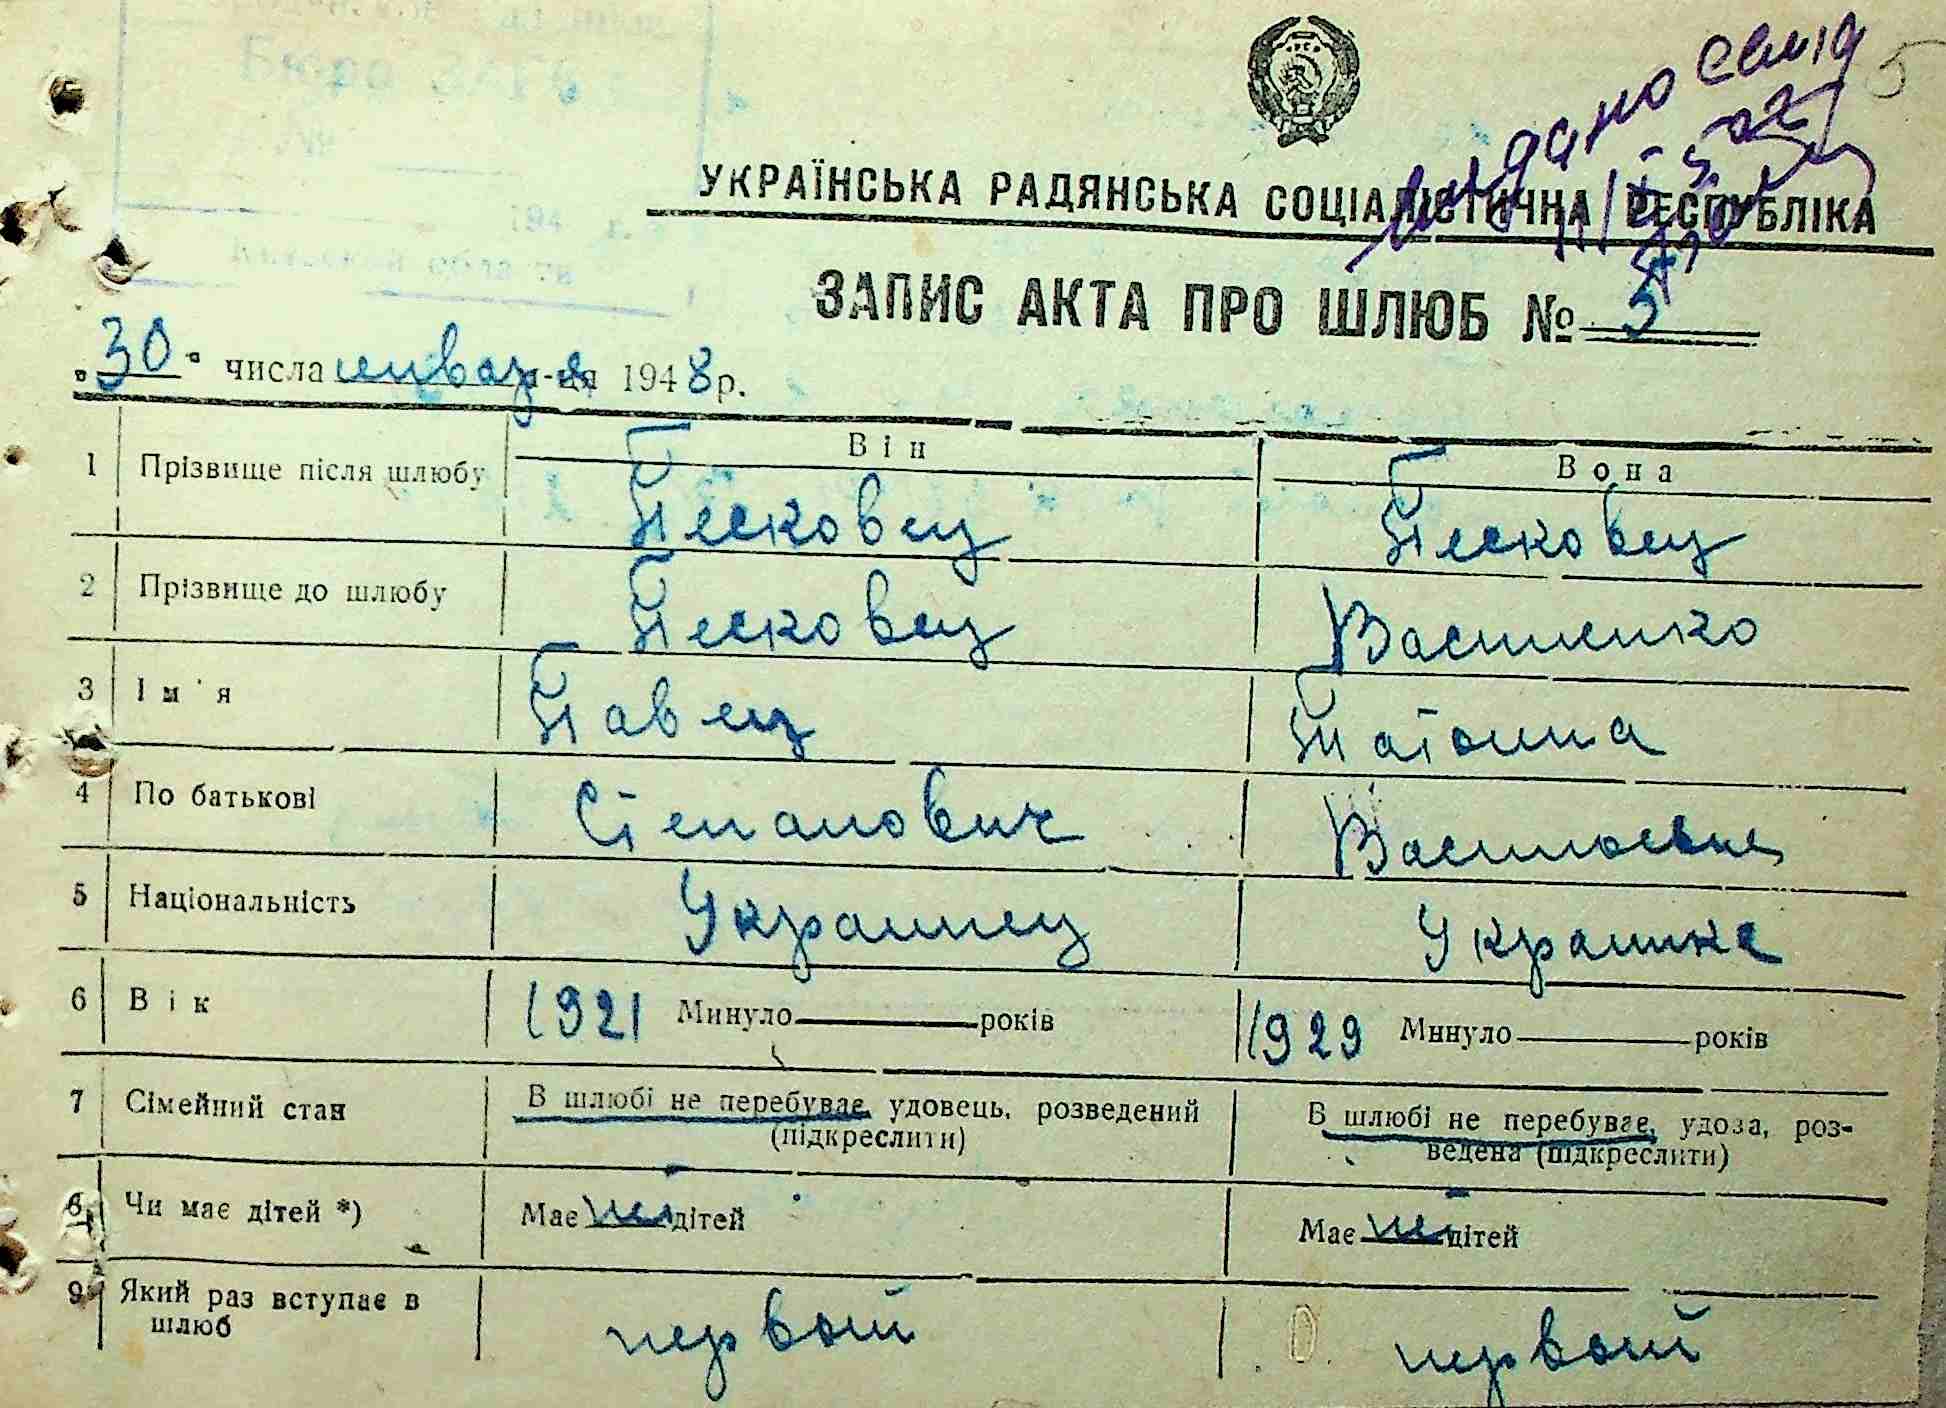 Бюро ЗАГС
№
194 г.
Киевской области
видано
УКРАЇНСЬКА РАДЯНСЬКА СОЦІАЛІСТИЧНА РЕСПУБЛІКА
ЗАПИС АКТА ПРО ШЛЮБ № 5
"30" числа января м-ця 1948 р.
Він Вона
1 Прізвище після шлюбу Песковец Песковец
2 Прізвище до шлюбу Песковец Василенко
3 Ім'я Павел Татьяна
4 По батькові Степанович Васильевна
5 Національність Украинец Украинка
6 Вік 1921 Минуло років 1929 Минуло років
7 Сімейний стан В шлюбі не перебуває, удовець, розведений (підкреслити) В шлюбі не перебуває, удова, роз-
ведена (підкреслити)
8 Чи має дітей *) Має нет дітей Має нет дітей
9 Який раз вступає в
шлюб первый первый